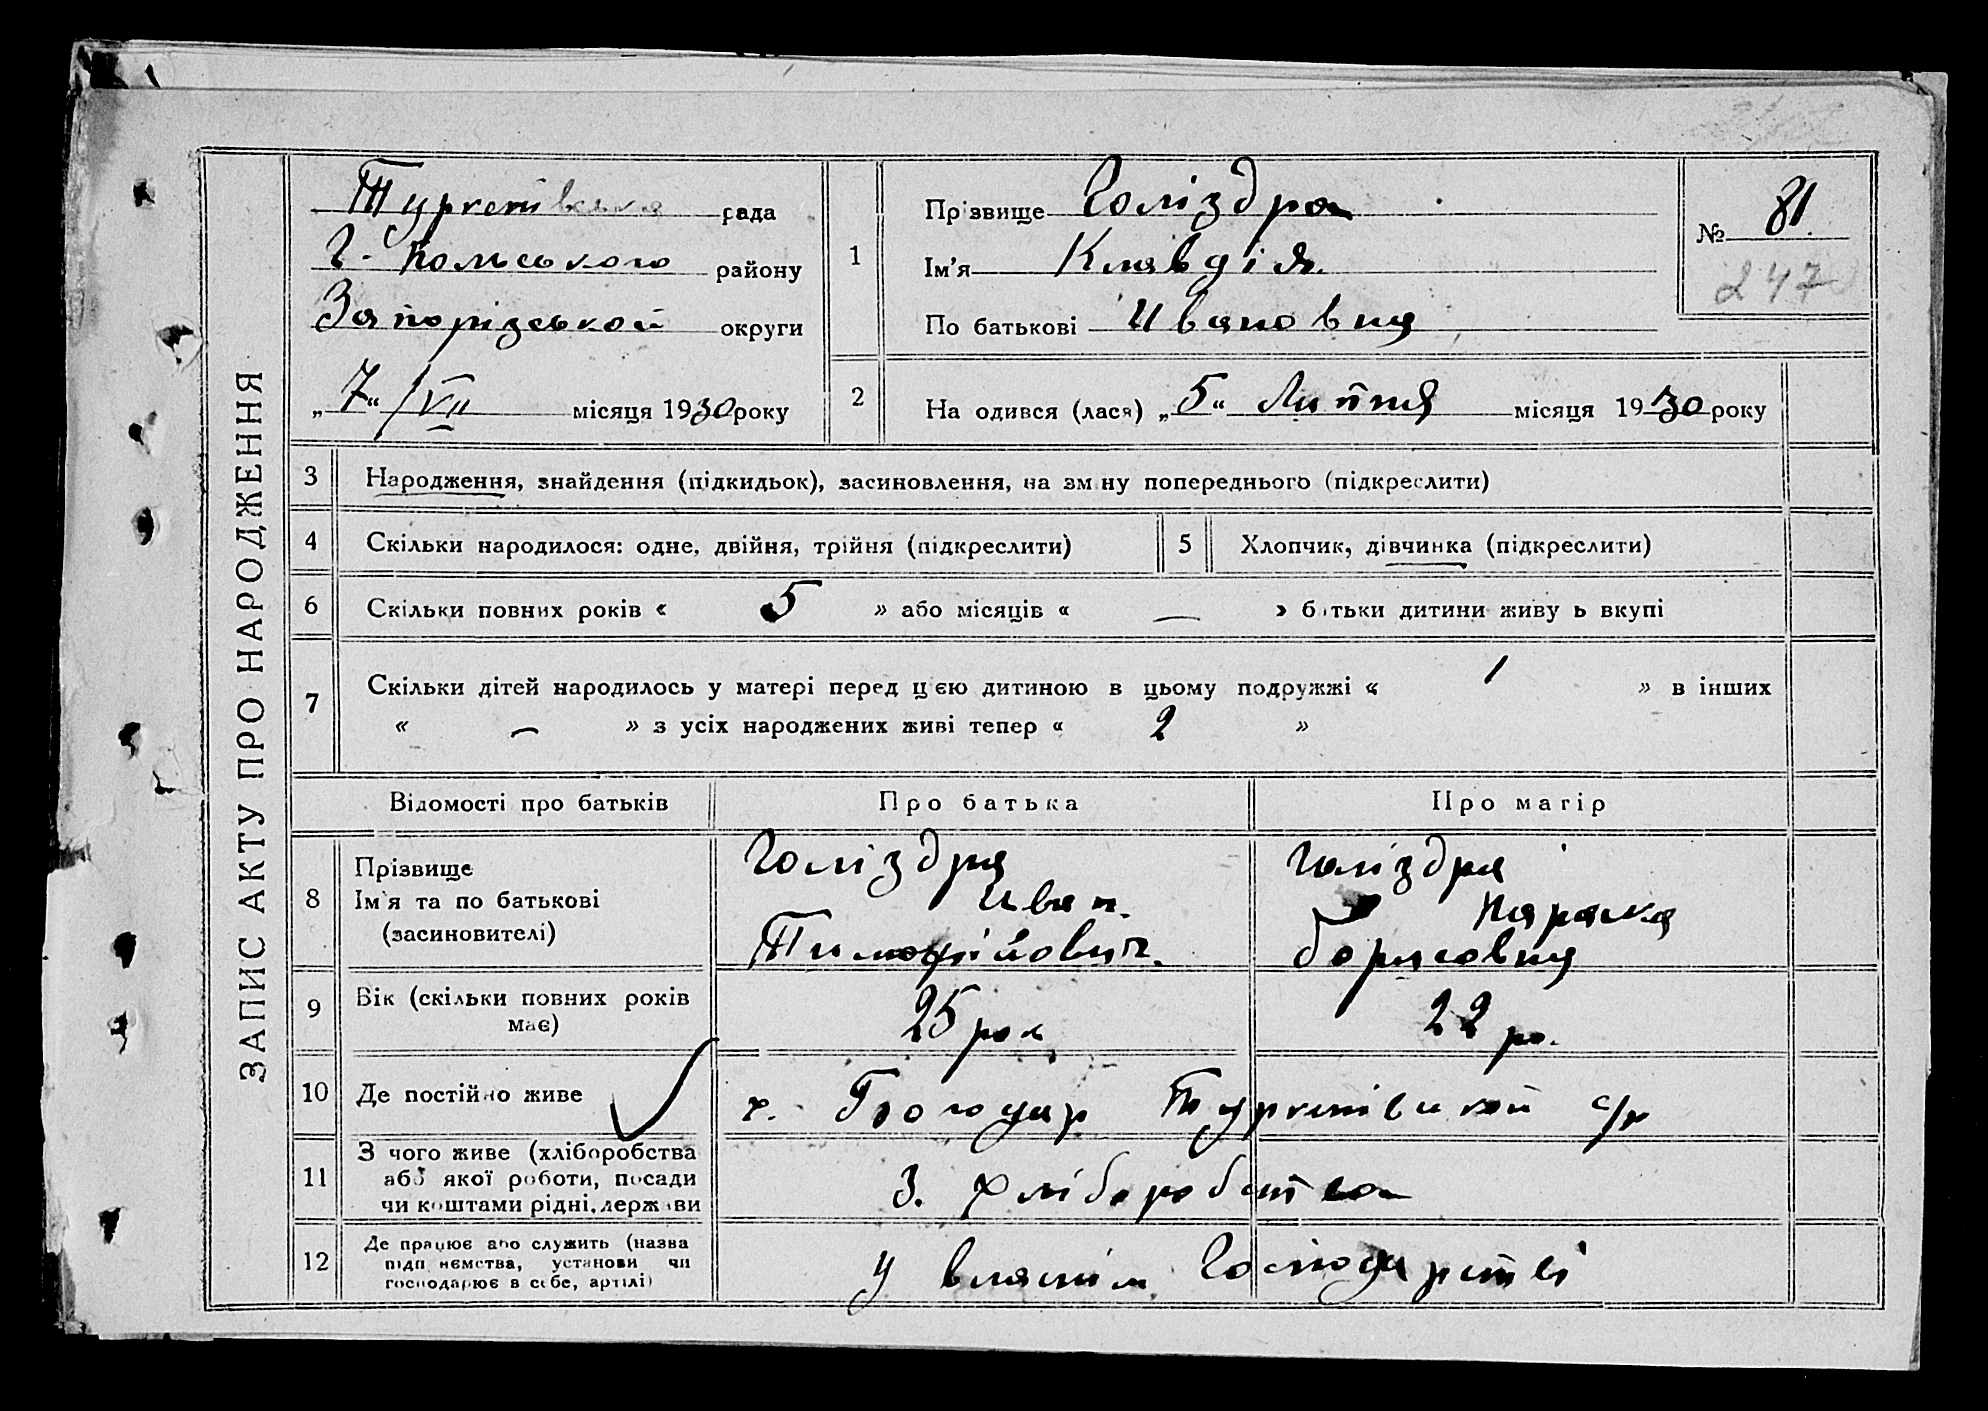 ЗАПИС АКТУ ПРО НАРОДЖЕННЯ
Туркенівська рада
Г. Польського району
Запорізької округи
„7“ /VII місяця 1930 року
1
Прізвище Голіздра
Ім'я Клавдія
По батькові Ивановна
№ 81
247
2
Народився (лася) „5“ Липня місяця 1930 року
3 Народження, знайдення (підкидьок), засиновлення, на зміну попереднього (підкреслити)
4 Скільки народилося: одне, двійня, трійня (підкреслити)
5 Хлопчик, дівчинка (підкреслити)
6 Скільки повних років « 5 » або місяців « — » батьки дитини живуть вкупі
7 Скільки дітей народилось у матері перед цією дитиною в цьому подружжі « 1 » в інших
« — » з усіх народжених живі тепер « 2 »
Відомості про батьків Про батька Про матір
8 Прізвище
Ім'я та по батькові
(засиновителі)
Голіздра
Иван
Тимофійович
Голіздра
Параска
Борисовна
9 Вік (скільки повних років
має)
25 рок
22 ро.
10 Де постійно живе
х. Туркенівської с/р
11 З чого живе (хліборобства
або якої роботи, посади
чи коштами рідні, держави
З. хліборобства
12 Де працює або служить (назва
підприємства, установи чи
господарює в себе, артілі)
У власнім Господарстві